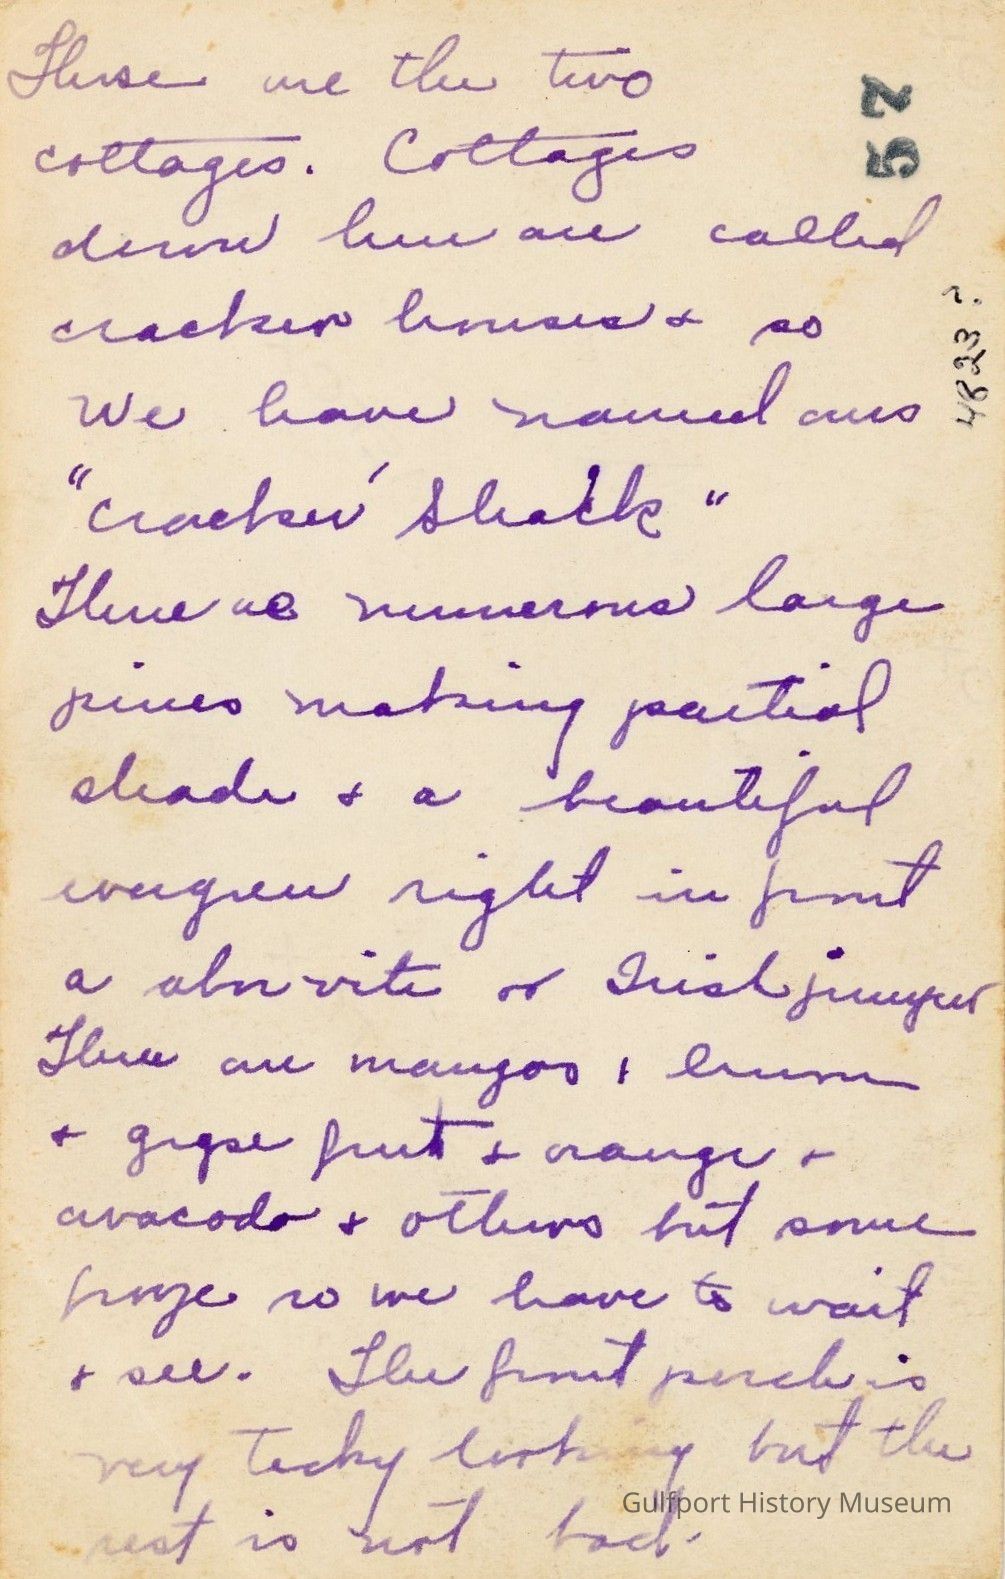 These are the two
cottages. Cottages
down here are called
cracker houses + so
We have named ours
"Cracker' Shack"
There are numerous large
pines making partial
shade + a beautiful
evergreen right in front
a abor vite or Irish juniper
There are mangos +
+ grape fruit + orange +
avacodo + others but some
froze so we have to wait
+ see. The front porch is
very tacky looking but the
rest is not bad.
57
4823 r.
Gulfport History Museum